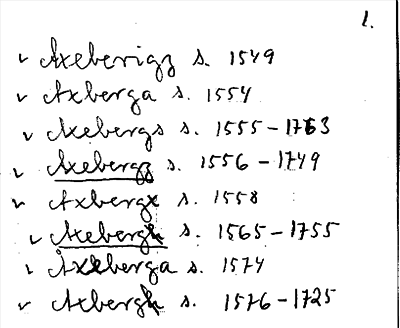 1.
✓ Axeberigz s. 1549
✓ Axberga s. 1554
✓ Axebergs s. 1555–1763
✓ Axebergz s. 1556–1749
✓ Axberge s. 1558
✓ Axebergh s. 1565–1755
✓ Axeberga s. 1574
✓ Axbergh s. 1576–1725